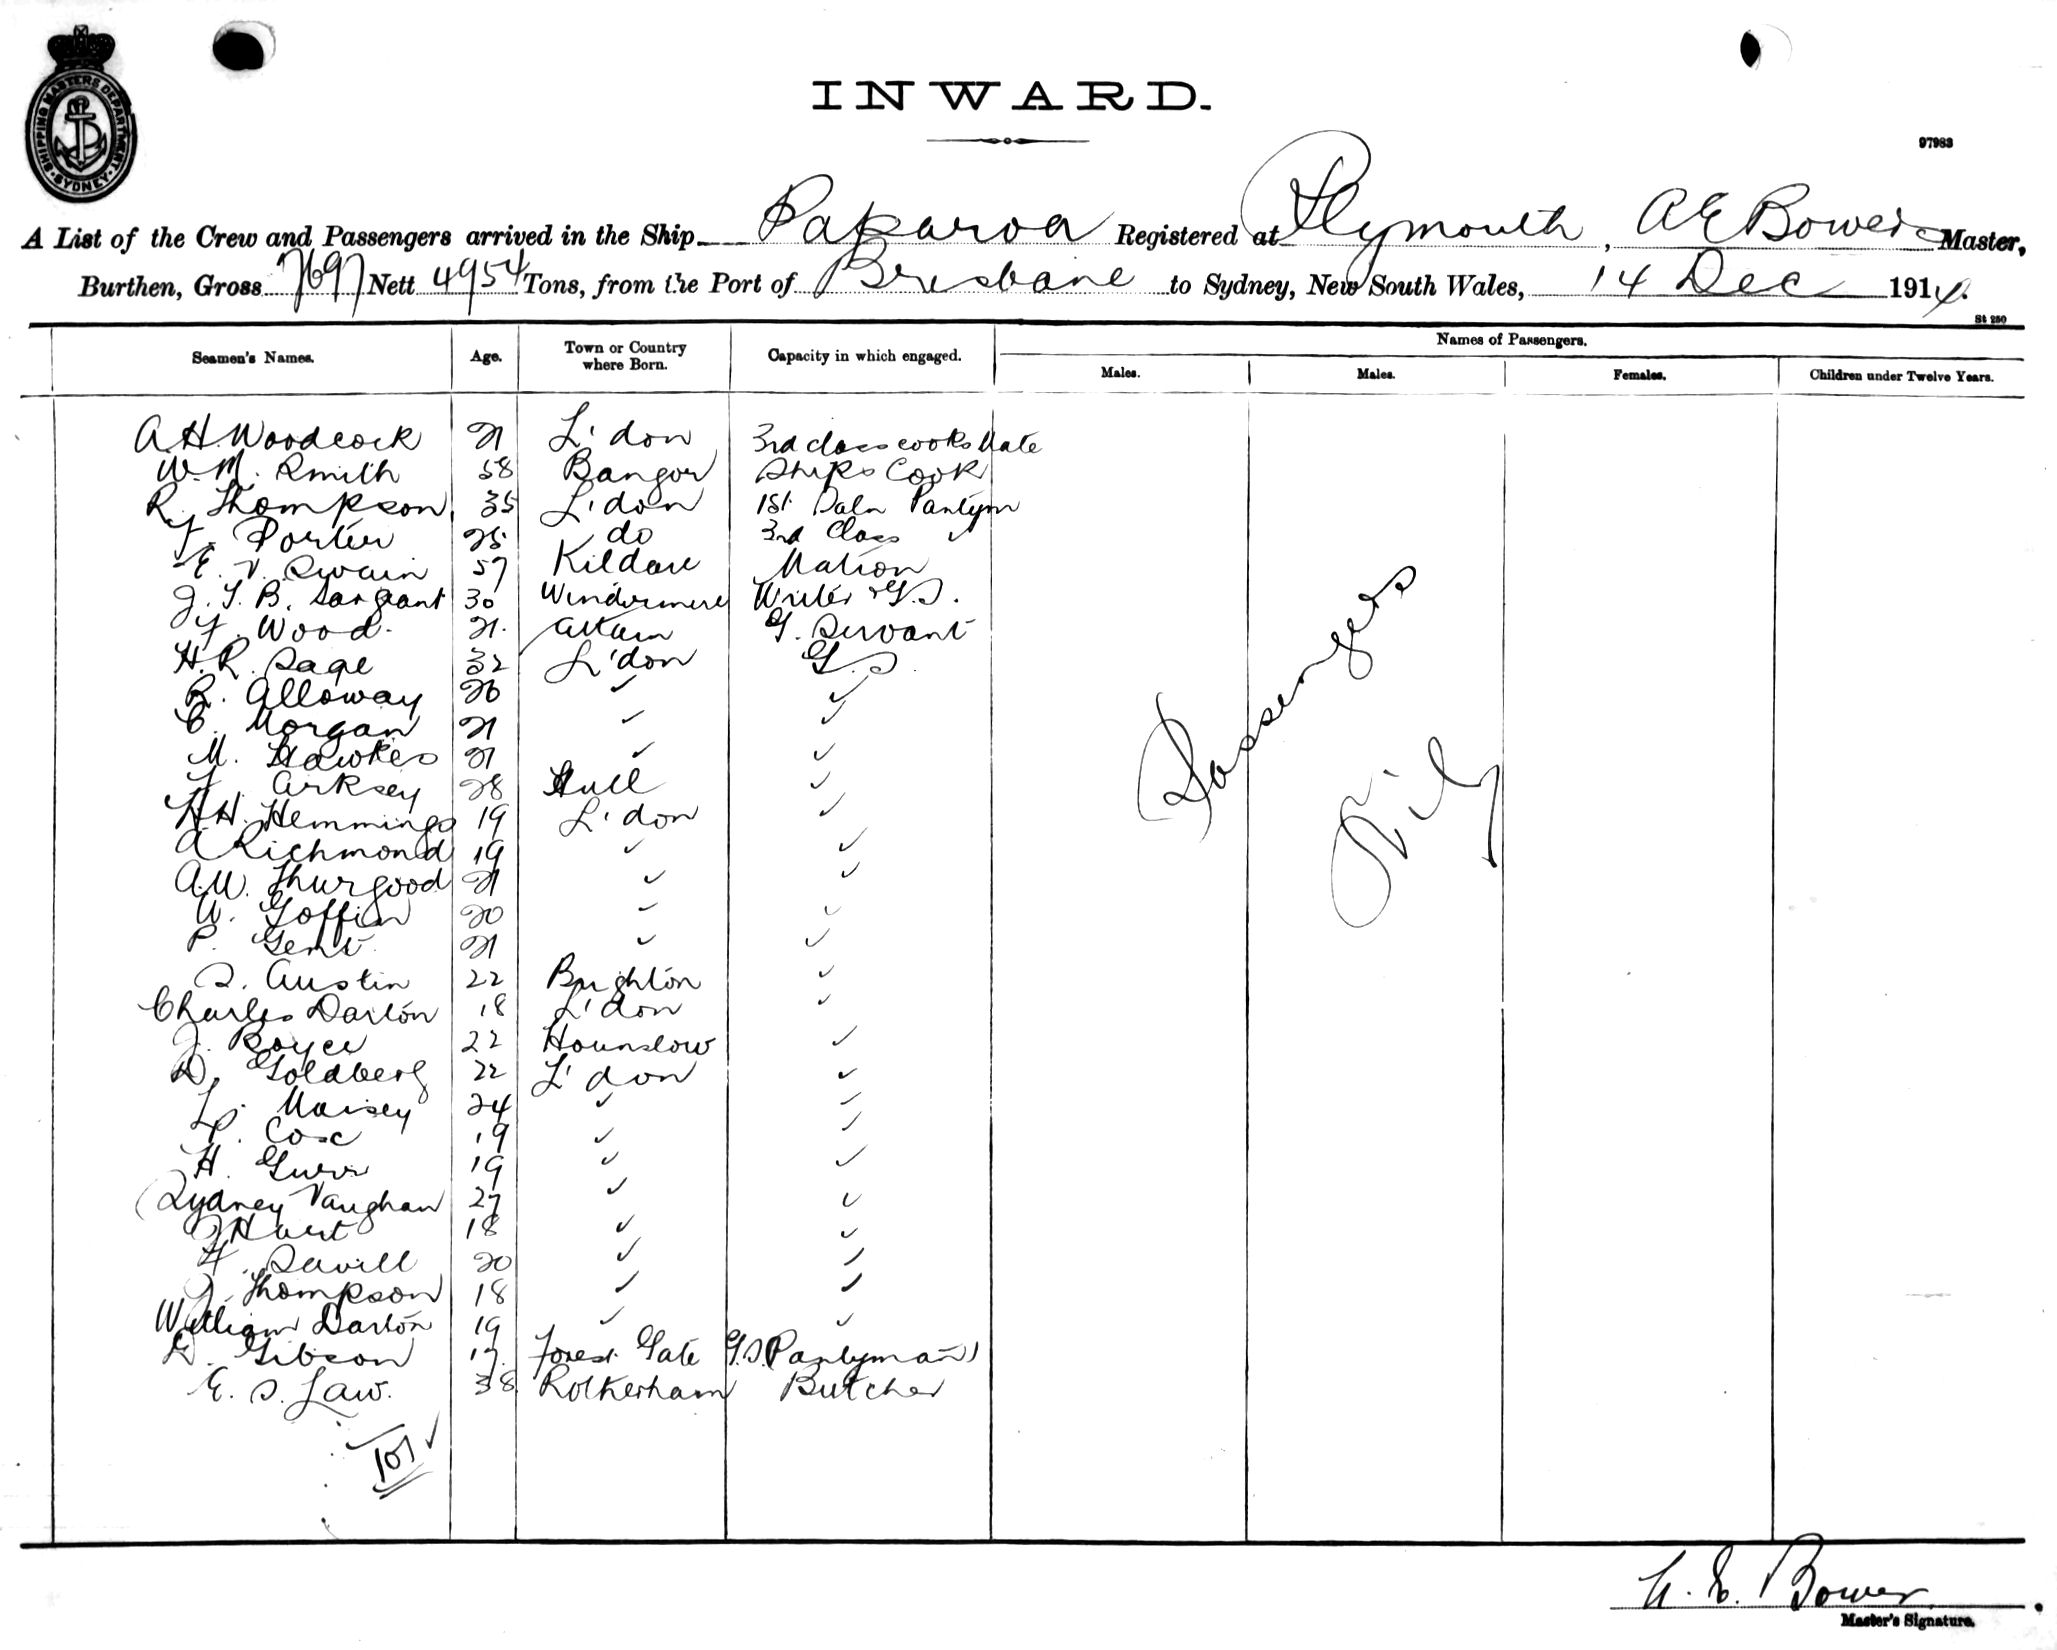 SHIPPING MASTERS DEPARTMENT
SYDNEY
INWARD.
97983
A List of the Crew and Passengers arrived in the Ship Paparoa Registered at Plymouth, A E Bower Master,
Burthen, Gross 7697 Nett 4954 Tons, from the Port of Brisbane to Sydney, New South Wales, 14 Dec 1914.
St 250
Seamen's Names. Age. Town or Country where Born. Capacity in which engaged. Names of Passengers.
Males. Males. Females. Children under Twelve Years.
A. H Woodcock 21 L'don 3rd class cooks Mate
W. M. Smith 58 Bangor Ships Cook
R. Thompson 35 L'don 1st Saln Pantym
Porter 25 do 3rd Class ✓
E. V. Swain 57 Kildare Matron
J. T. B. Sargeant 30 Windermere Writer & G.S.
Wood. 21. G. Servant
H. R. Sage 32 L'don G.S.
R. Alloway 26 ✓ ✓
C. Morgan 21 ✓ ✓
M. Hawkes 21 ✓ ✓
Arksey 28 Hull ✓
H. H. Hemmings 19 L'don ✓
A Richmond 19 ✓ ✓
A.W. Thurgood 21 ✓ ✓
W. Goffin 20 ✓ ✓
P. Gent 21 ✓ ✓
S. Austin 22 Brighton ✓
Charles Darton 18 L'don ✓
J. Royce 22 Hounslow ✓
D. Goldberg 22 L'don ✓
L. Maisey 24 ✓ ✓
Cox 19 ✓ ✓
H. Gurr 19 ✓ ✓
Sydney Vaughan 27 ✓ ✓
Hurt 18 ✓ ✓
Savill 20 ✓ ✓
J. Thompson 18 ✓ ✓
William Darton 19 ✓ ✓
Gibson 17 Forest Gate G.S. (Pantyman)
E. S. Law. 38 Rotherham Butcher
107 ✓
Passengers
Nil
A. E. Bower
Master's Signature.